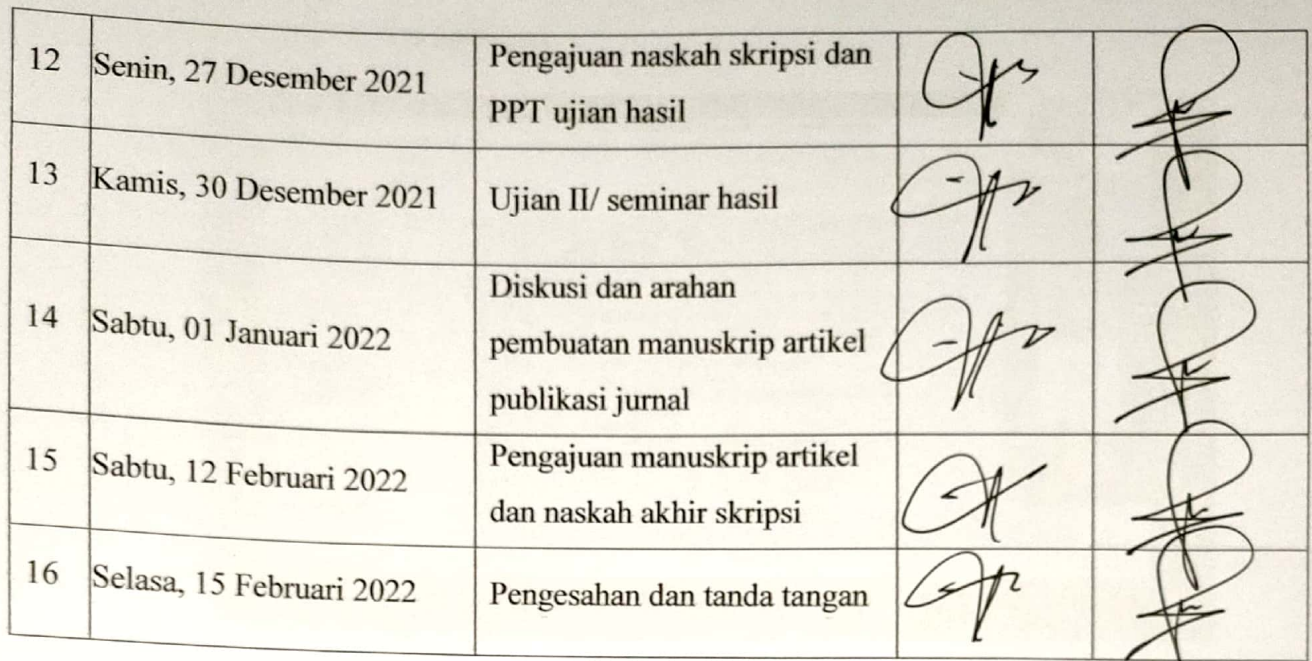 12
Senin, 27 Desember 2021
Pengajuan naskah skripsi dan
PPT ujian hasil
13
Kamis, 30 Desember 2021
Ujian II/ seminar hasil
14
Sabtu, 01 Januari 2022
Diskusi dan arahan
pembuatan manuskrip artikel
publikasi jurnal
15
Sabtu, 12 Februari 2022
Pengajuan manuskrip artikel
dan naskah akhir skripsi
16
Selasa, 15 Februari 2022
Pengesahan dan tanda tangan